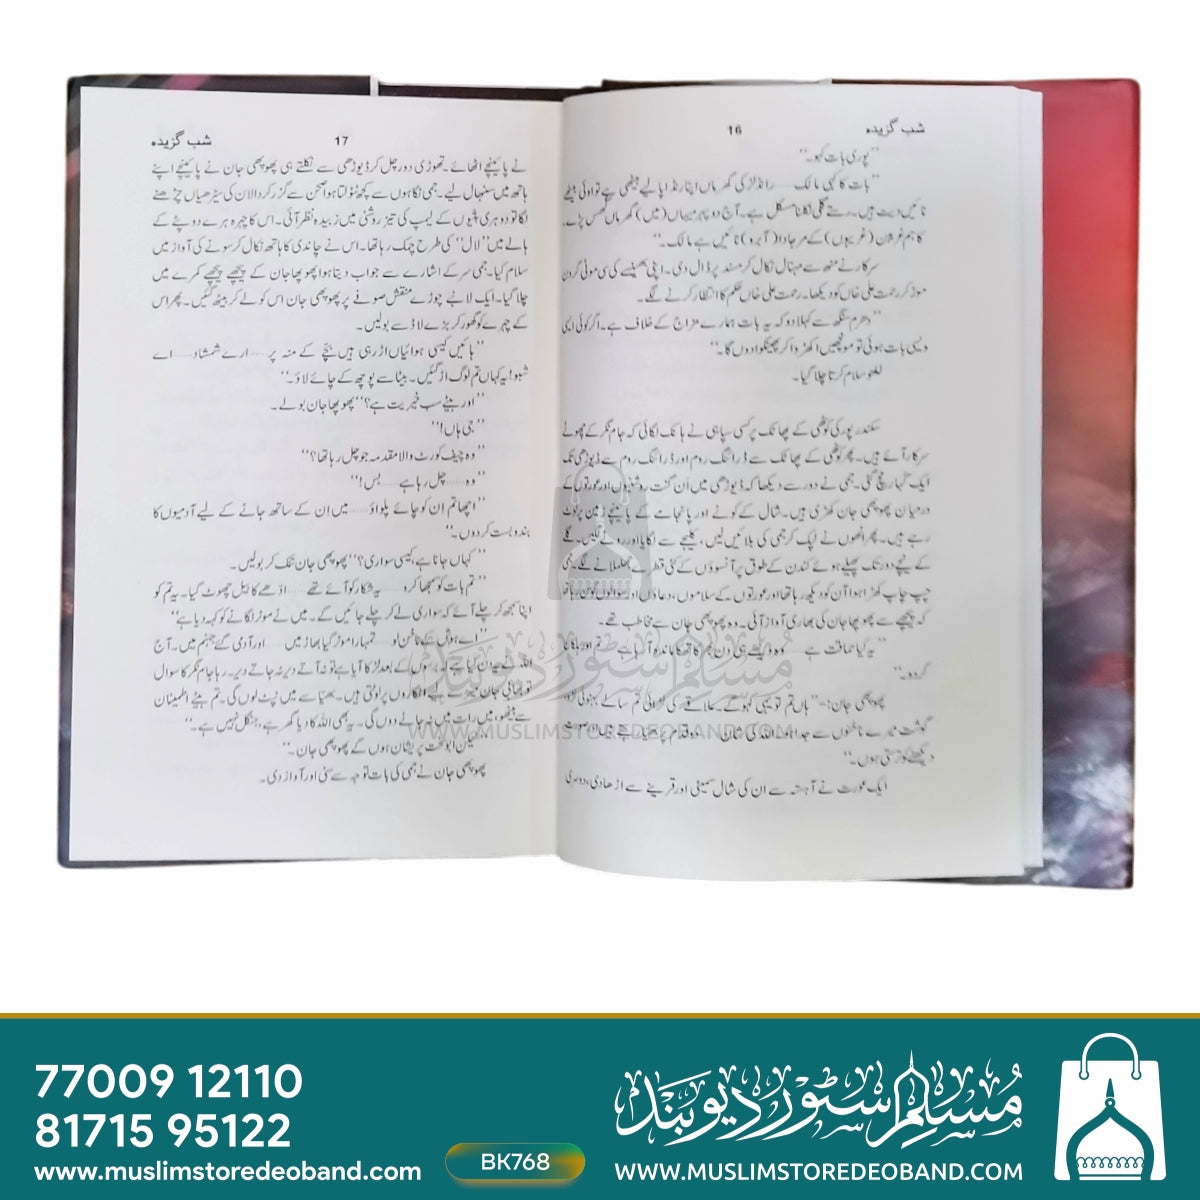 شب گزیدہ
16
’’پوری بات کہو۔‘‘
’’بات کا کہی مالک ...... رانڈلز کی گھر ماں اپنا رنڈاپا لیے بیٹھی ہے تو اوئی بیٹھے
نائیں دیت ہیں۔ رستے گلی نکلنا مسکل ہے۔ آج دوپہر میہاں (میں) گھر ماں گھس پڑے۔
کا ہم غربن (غریبوں) کے مرجادا (آبرو) نائیں ہے مالک۔‘‘
سرکار نے منھ سے مہنال نکال کر مسند پر ڈال دی۔ اپنی بھینسے کی سی موٹی گردن
موڑ کر رحمت علی خاں کو دیکھا۔ رحمت علی خاں حکم کا انتظار کرنے لگے۔
’’دھرم سنگھ سے کہلا دو کہ یہ بات ہمارے مزاج کے خلاف ہے۔ اگر کوئی ایسی
ویسی بات ہوئی تو مونچھیں اکھڑوا کر پھینکوا دوں گا۔‘‘
للھو سلام کرتا چلا گیا۔
سکندر پوری کوٹھی کے پھاٹک پر کسی سپاہی نے ہانک لگائی کہ جام نگر کے چھوٹے
سرکار آئے ہیں۔ پھر کوٹھی کے پھاٹک سے ڈرائنگ روم اور ڈرائنگ روم سے ڈیوڑھی تک
ایک گہار مچ گئی۔ جمی نے دور سے دیکھا کہ ڈیوڑھی میں اَن گنت روشنیوں اور عورتوں کے
درمیان پھوپھی جان کھڑی ہیں۔ شال کے کونے اور پائجامے کے پائنچے زمین پر لوٹ
رہے ہیں۔ پھر انھوں نے لپک کر جمی کی بلائیں لیں، کلیجے سے لگایا اور رونے لگیں۔ گلے
کے نیچے دور تک پھیلے ہوئے کندن کے طوق پر آنسوؤں کے کئی قطرے جھلملانے لگے۔ جمی
چپ چاپ کھڑا ہوا اُن کو دیکھ رہا تھا اور عورتوں کے سلاموں، دعاؤں اور سوالوں کو سن رہا تھا
کہ پیچھے سے پھوپھا جان کی بھاری آواز آئی۔ وہ پھوپھی جان سے مخاطب تھے۔
’’یہ کیا حماقت ہے
پھوپھی جان:۔ ’’ہاں تم تو یہی کہو گے۔ علاقے کی لڑائی تم سالے بہنوئی لڑو
گوشت میرے ناخنوں سے جدا
دیکھنے کو ترستی ہوں۔‘‘
ایک عورت نے آہستہ سے ان کی شال سمیٹی اور قرینے سے اڑھا دی، دوسری
17
شب گزیدہ
نے پائینچے اٹھائے۔ تھوڑی دور چل کر ڈیوڑھی سے نکلتے ہی پھوپھی جان نے پائینچے اپنے
ہاتھ میں سنبھال لیے۔ جمی نگاہوں سے کچھ ٹٹولتا ہوا صحن سے گزر کر دالان کی سیڑھیاں چڑھنے
لگا تو دوہری بتیوں کے لیمپ کی تیز روشنی میں زبیدہ نظر آئی۔ اس کا چہرہ ہرے دوپٹے کے
ہالے میں ’’لال‘‘ کی طرح چمک رہا تھا۔ اس نے چاندی کا ہاتھ نکال کر سونے کی آواز میں
سلام کیا۔ جمی سر کے اشارے سے جواب دیتا ہوا پھوپھا جان کے پیچھے پیچھے کمرے میں
چلا گیا۔ ایک لانبے چوڑے منقش صوفے پر پھوپھی جان اس کو لے کر بیٹھ گئیں۔ پھر اس
کے چہرے کو گھور کر بڑے لاڈ سے بولیں۔
’’ہائیں کیسی ہوائیاں اڑ رہی ہیں بچے کے منہ پر ...... ارے شمشاد ...... اے
شبو! یہ کہاں تم لوگ اڑ گئیں۔ بیٹا سے پوچھ کے چائے لاؤ۔‘‘
’’اور بیٹے سب خیریت ہے؟‘‘ پھوپھا جان بولے۔
’’جی ہاں!‘‘
’’وہ چیف کورٹ والا مقدمہ جو چل رہا تھا؟‘‘
’’وہ ...... چل رہا ہے ...... بس!‘‘
’’اچھا تم ان کو چائے پلواؤ ...... میں ان کے ساتھ جانے کے لیے آدمیوں کا
بندوبست کر دوں۔‘‘
’’کہاں جانا ہے، کیسی سواری؟‘‘ پھوپھی جان تنک کر بولیں۔
’’تم بات کو سمجھا کرو ...... یہ شکار کو آئے تھے ...... اڈھے کا بیل چھوٹ گیا۔ یہ تم کو
اپنا سمجھ کر چلے آئے کہ سواری لے کر چلے جائیں گے۔ میں نے موٹر لگانے کو کہہ دیا ہے‘‘
’’اے ہوش کے ناخن لو ...... تمہارا موٹر گیا بھاڑ میں ...... اور آدمی گے جہنم میں۔ آج
اللہ نے یہ دن کیا ہے کہ برسوں کے بعد لڑکا آیا ہے تو نہ آتے دیر نہ جاتے دیر۔ رہا جام نگر کا سوال
تو بھابی جان میرے لیے انگاروں پر لوٹتی ہیں۔ بھیا سے میں نپٹ لوں گی۔ تم بیٹے اطمینان
سے بیٹھو، میں رات میں نہ جانے دوں گی۔ یہ بھی اللہ کا دیا گھر ہے، جنگل نہیں ہے۔‘‘
’’لیکن ابو سخت پریشان ہوں گے پھوپھی جان۔‘‘
پھوپھی جان نے جمی کی بات توجہ سے سنی اور آواز دی۔
مسلم سٹور دیوبند
WWW.MUSLIMSTOREDEOBAND.COM
77009 12110
81715 95122
www.muslimstoredeoband.com
BK768
مسلم سٹور دیوبند
WWW.MUSLIMSTOREDEOBAND.COM